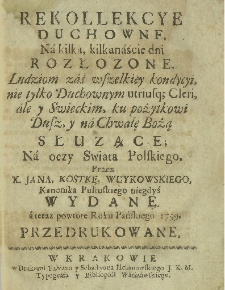 REKOLLEKCYE
DUCHOWNE,
Ná kilká, kilkanaście dni
ROZŁOZONE.
Ludziom záś wszelkiey kondycyi,
nie tylko Duchownym utriusq; Cleri,
ale y Swieckim, ku pożytkowi
Dusz, y ná Chwałę Bożą
SŁUZĄCE;
Ná oczy Swiata Polskiego,
Przez
X. JANA, KOSTKĘ, WUYKOWSKIEGO,
Kánoniká Pułtuskiego niegdyś
WYDANE,
á teraz powtore Roku Páńskiego 1739.
PRZEDRUKOWANE,
W KRAKOWIE
w Drukarni Jakuba y J. K. M.
Typografa y